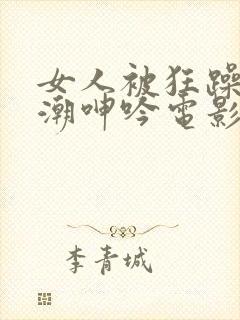 女人被狂躁
潮呻吟电影
李青城